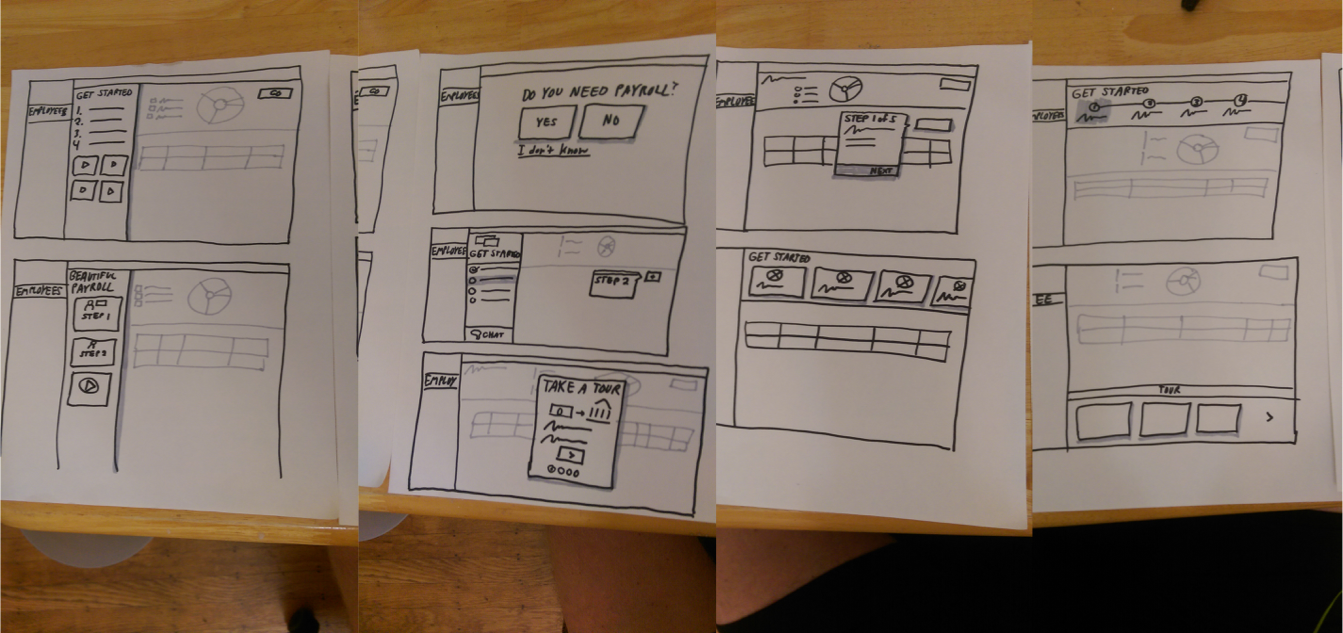 EMPLOYEES
GET STARTED
1.
2.
3.
4
GO
EMPLOYEES
BEAUTIFUL
PAYROLL
STEP 1
STEP 2
GO
E
EMPLOYEES
DO YOU NEED PAYROLL?
YES
NO
I don't know
EMPLOYEE
GET STARTED
STEP 2
CHAT
EMPLOY
TAKE A TOUR
EMPLOYEE
STEP 1 of 5
NEXT
GET STARTED
PLOYEES
GET STARTED
1
2
3
4
EE
TOUR